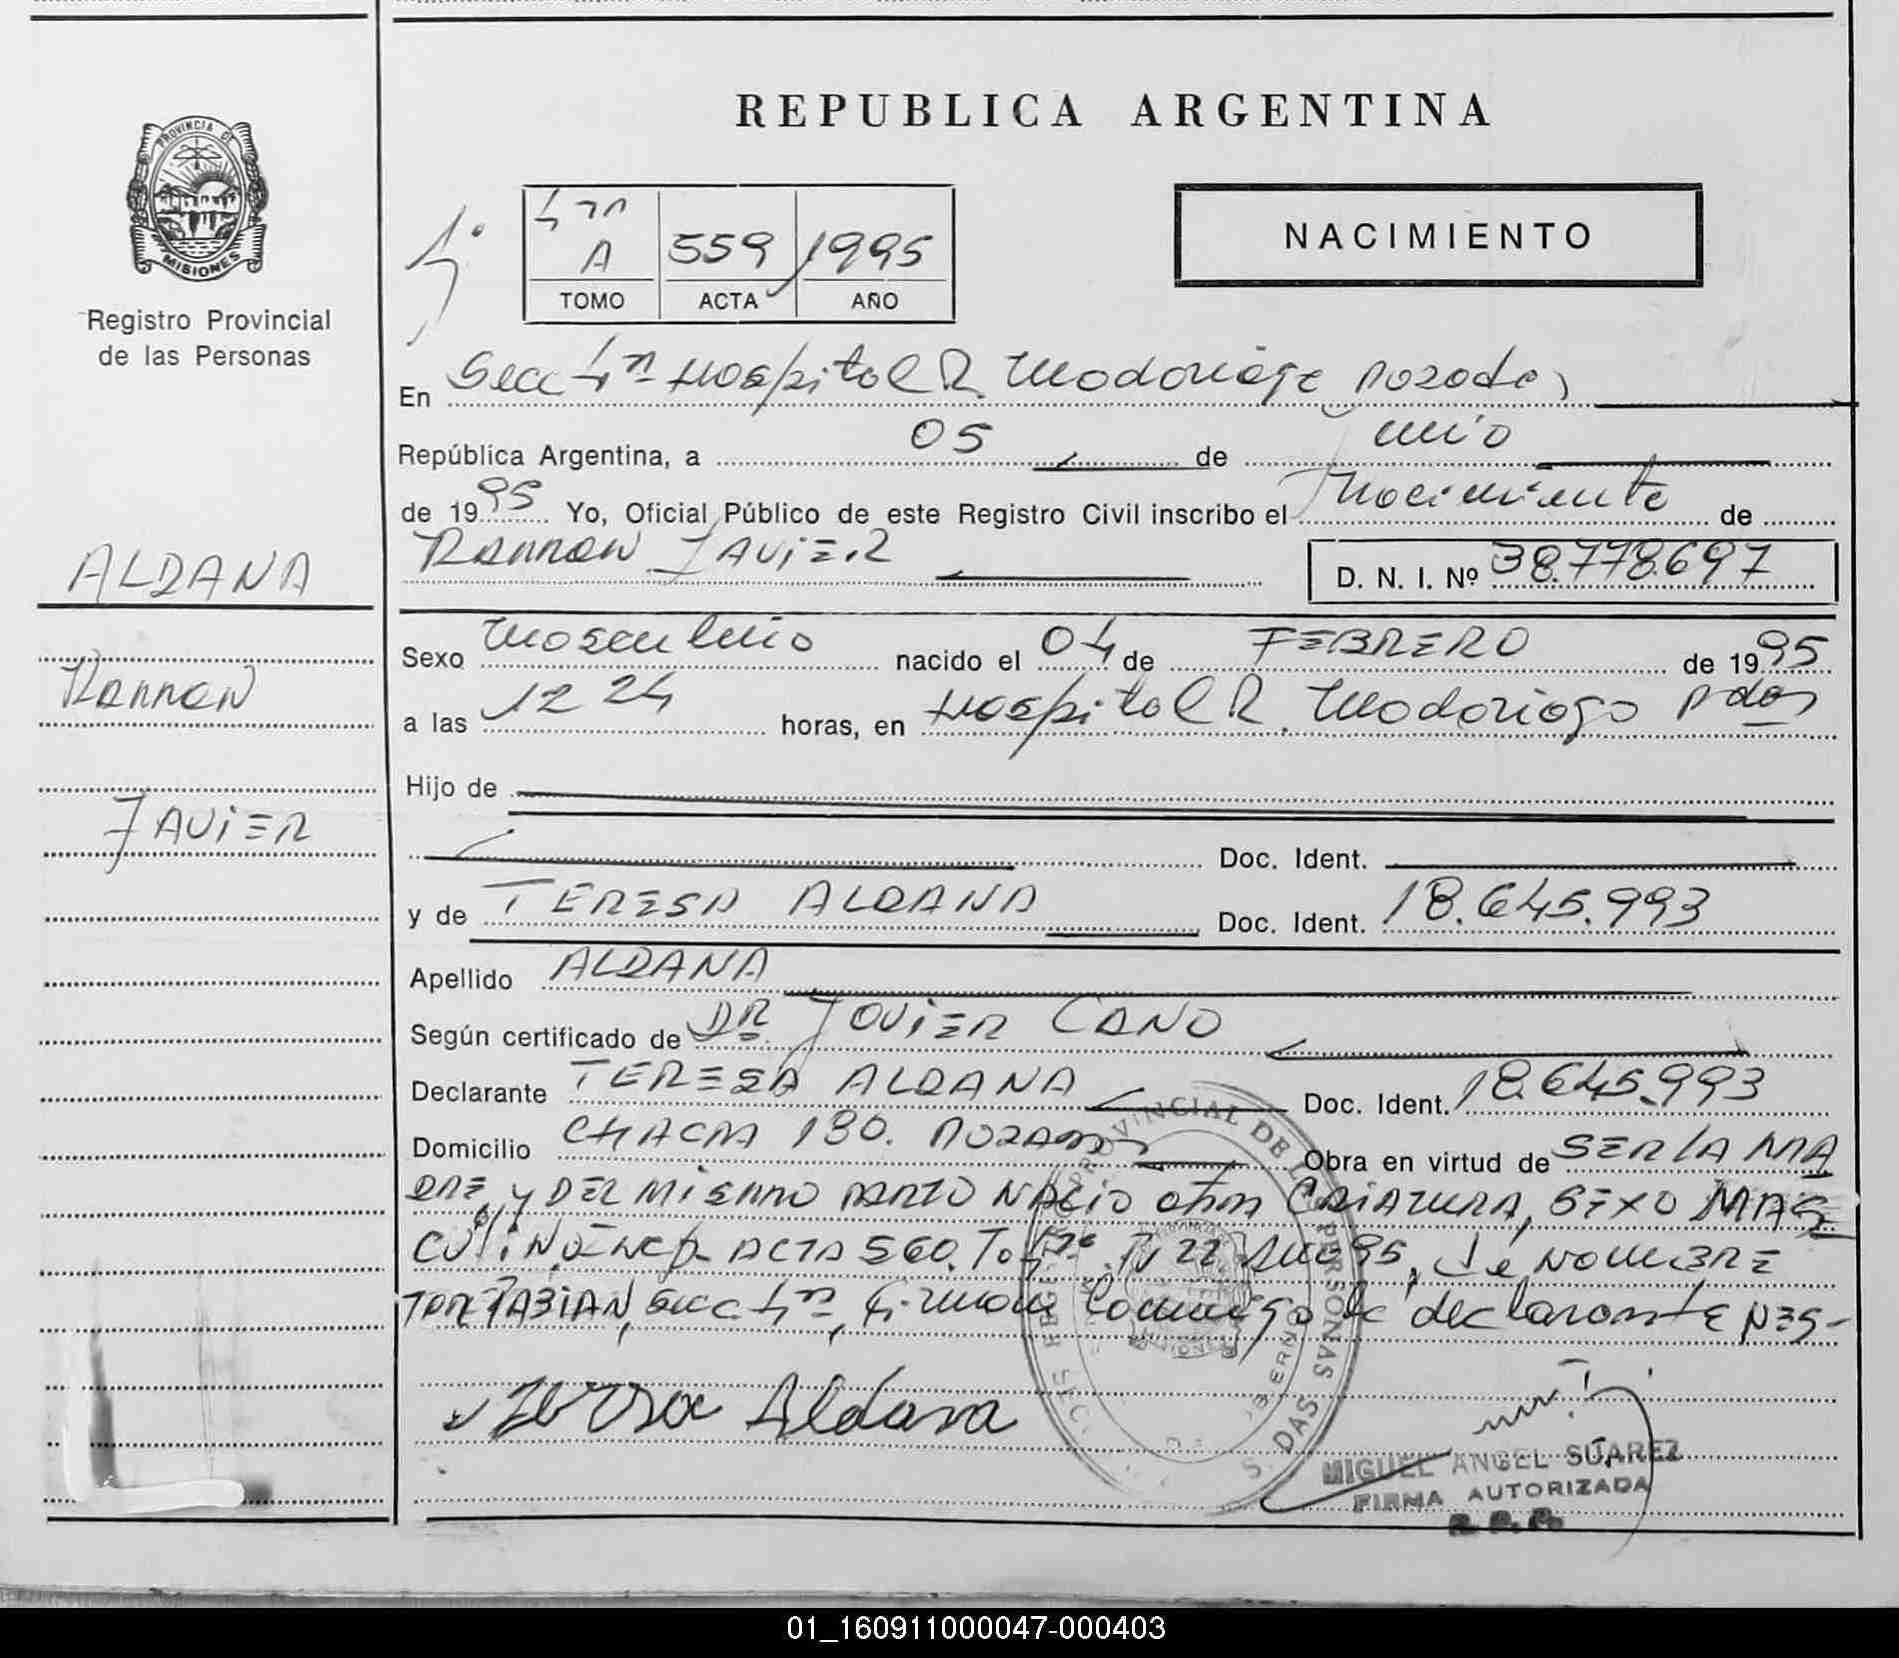 REPUBLICA ARGENTINA
PROVINCIA DE
MISIONES
Registro Provincial
de las Personas
4º
4ta
A 559 1995
TOMO ACTA AÑO
NACIMIENTO
En Secc 4ta Hospital R. Madariaga Posadas
República Argentina, a 05 de Junio
de 1995 Yo, Oficial Público de este Registro Civil inscribo el Nacimiento de
Ramon Javier
D. N. I. Nº 38.778.697
ALDANA
Ramon
JAVIER
Sexo Masculino nacido el 04 de FEBRERO de 1995
a las 12 24 horas, en Hospital R. Madariaga Pdas
Hijo de
Doc. Ident.
y de TERESA ALDANA Doc. Ident. 18.645.993
Apellido ALDANA
Según certificado de DR JAVIER CANO
Declarante TERESA ALDANA Doc. Ident. 18.645.993
Domicilio CHACRA 130. POSADAS Obra en virtud de SER LA MA
DRE, y DEL MISMO PARTO NACIO OTRA CRIATURA, SEXO MAS
CULINO ACTA 560. Tº 4to 95, de NOMBRE
FABIAN, Secc 4ta, firma conmigo la declarante
Teresa Aldana
MIGUEL ANGEL SUAREZ
FIRMA AUTORIZADA
R. P. P.
01_160911000047-000403